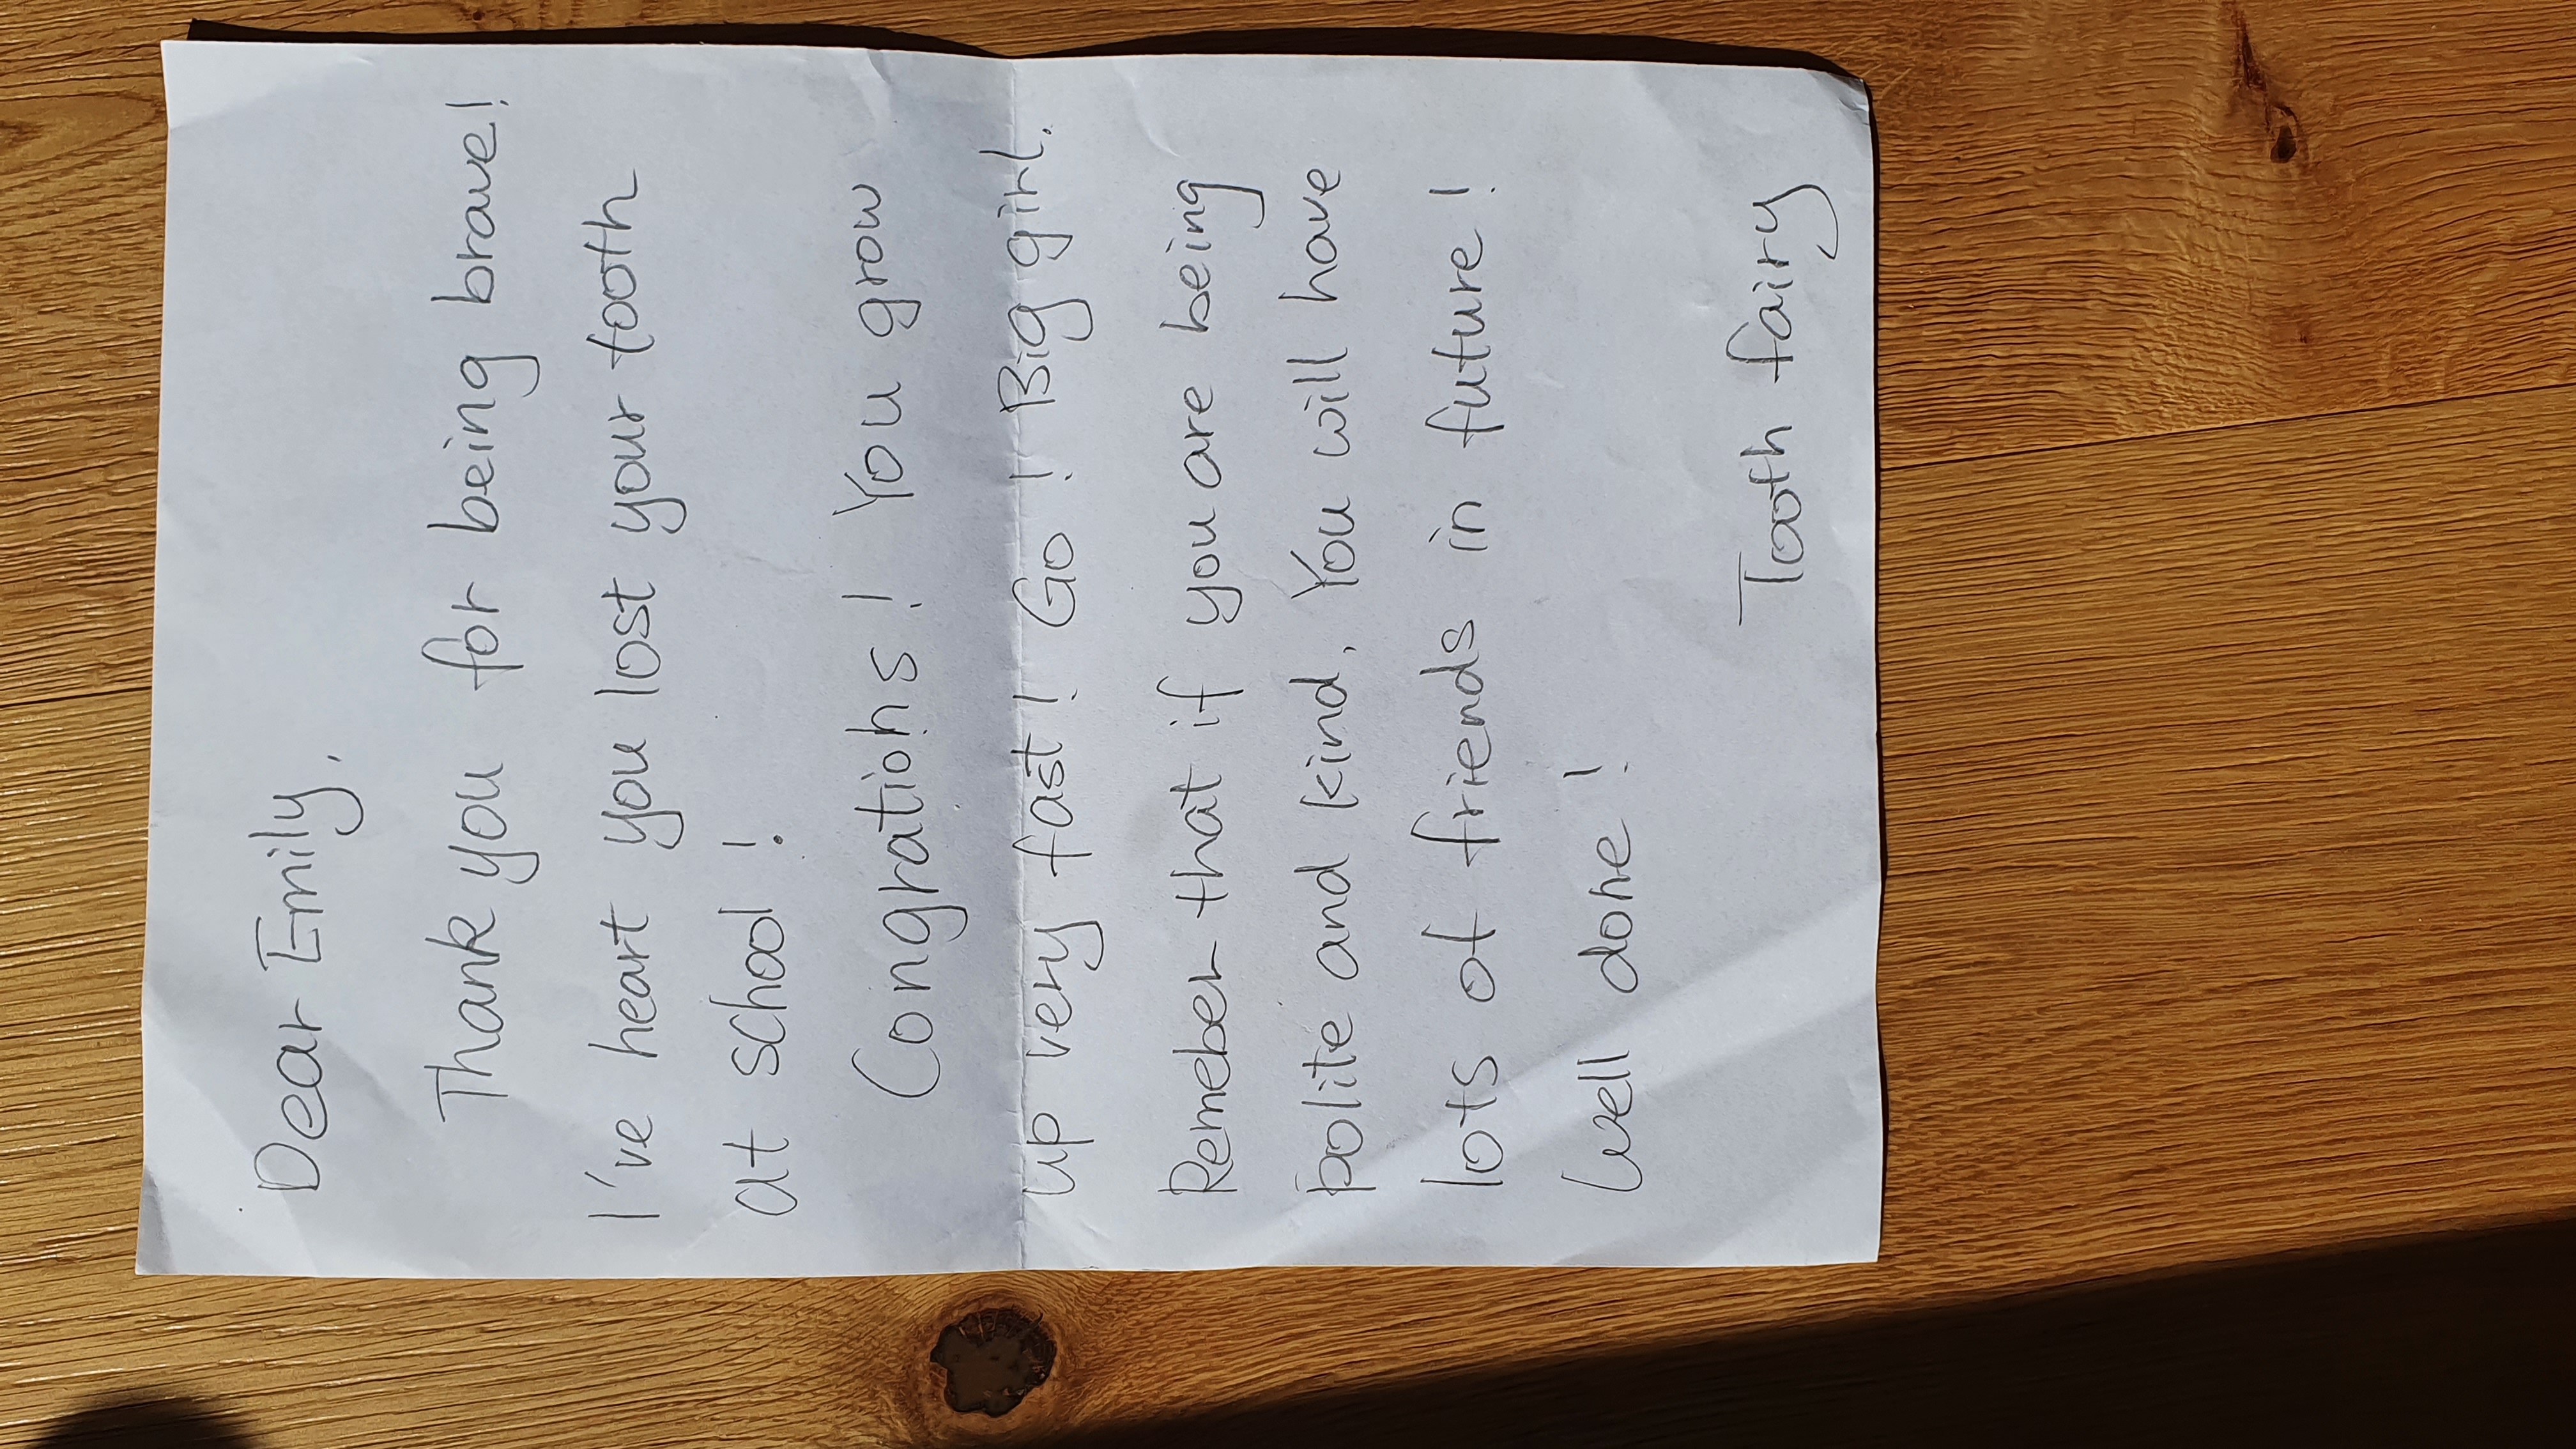 Dear Emily,
Thank you for being brave!
I've heart you lost your tooth
at school !
Congrations! You grow
up very fast! Go ! Big girl.
Remeber that if you are being
polite and kind, You will have
lots of friends in future !
Well done !
Tooth fairy